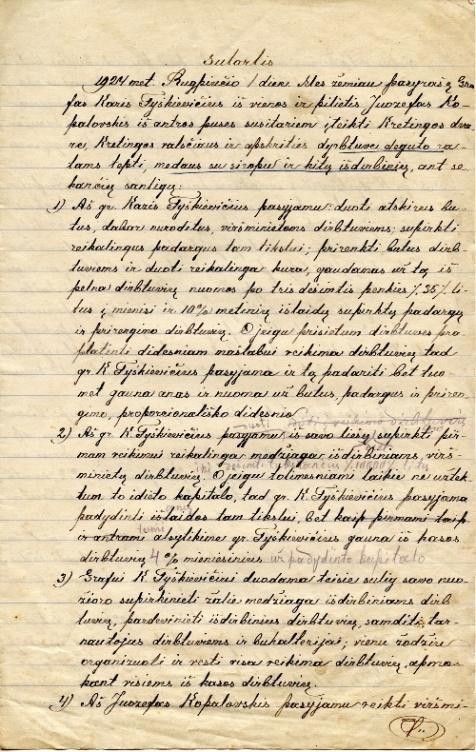 sutartis
1924 met. Rugpiučio 1 dien. Mes žemiau pasyrošę Gra-
fas Kazis Tyškievičius iš vienos ir pilietis Juozefas Ko-
palovskis iš antros puses susitariem įteikti Kretingos dva-
re, Kretingos valsčiaus ir apskrities dyrbtuvę deguto ra-
tams tepti, medaus su siropu ir kitų išdirbinių, ant se-
kančių santigų:
1) Aš gr. Kazis Tyškievičius pasyjamu duoti atskirus bu-
tus, dabar nuroditus, viršminietoms dirbtuviems; supirkti
reikalingus padargus tam tikslui; prirenkti butus dirb-
tuviems ir duoti reikalinga kura, gaudamas už tą iš
pelna dirbtuvių nuomos po tris desimtis penkies /35/ li-
tus į mienesi ir 10% metinių išlaidų supirktų padargų
ir prirengimo dirbtuvių. O jeigu prisietum dirbtuves pra
platinti didesniam maštabui reikima dirbtuvių tad
gr. K Tyškievičius pasyjama ir tą padariti bet tuo-
met gauna anas ir nuoma už butus, padargus ir priren-
gimo, proporcionališko didesnio
2) Aš gr. K Tyškievičius pasyjamu iš savo liešų supirkti pir-
mam reikimui reikalinga medžiaga išdirbiniams, virš-
minietų dirbtuvių. O jeigu tolimesniam laikie ne užtek-
tum to idieto kapitalo, tad gr. K Tyškievičius pasyjama
padydinti išlaides tam tikslui, bet kaip pirmam taip
ir antram atsytikime gr. Tyškievičius gauna iš kasos
dirbtuvių 4 % mieniesinius už padydinto kapitalo
3) Grafui K Tyškievičiui duodama teisie sulig savo nuo-
žioro supirkinieti žalie medžiaga išdirbiniams dirb
tuvių, pardevinieti išdirbinius dirbtuvių, samditi tar-
nautojus dirbtuviems ir buhalterijai; vienu žodžiu
organizuoti ir vesti visa reikima dirbtuvių, apmo-
kant visiems iš kasos dirbtuvių.
4) Aš Juozefas Kopalovskis pasyjamu reikti viršmi-